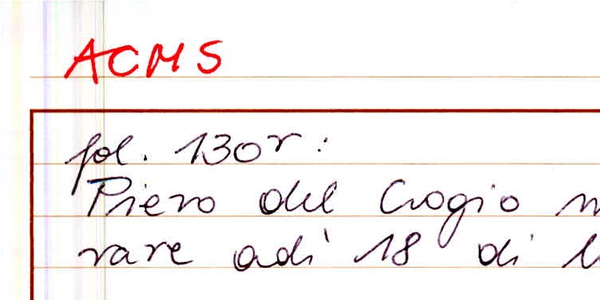 ACMS
fol. 130r:
Piero del Crogio
rare adì 18 di